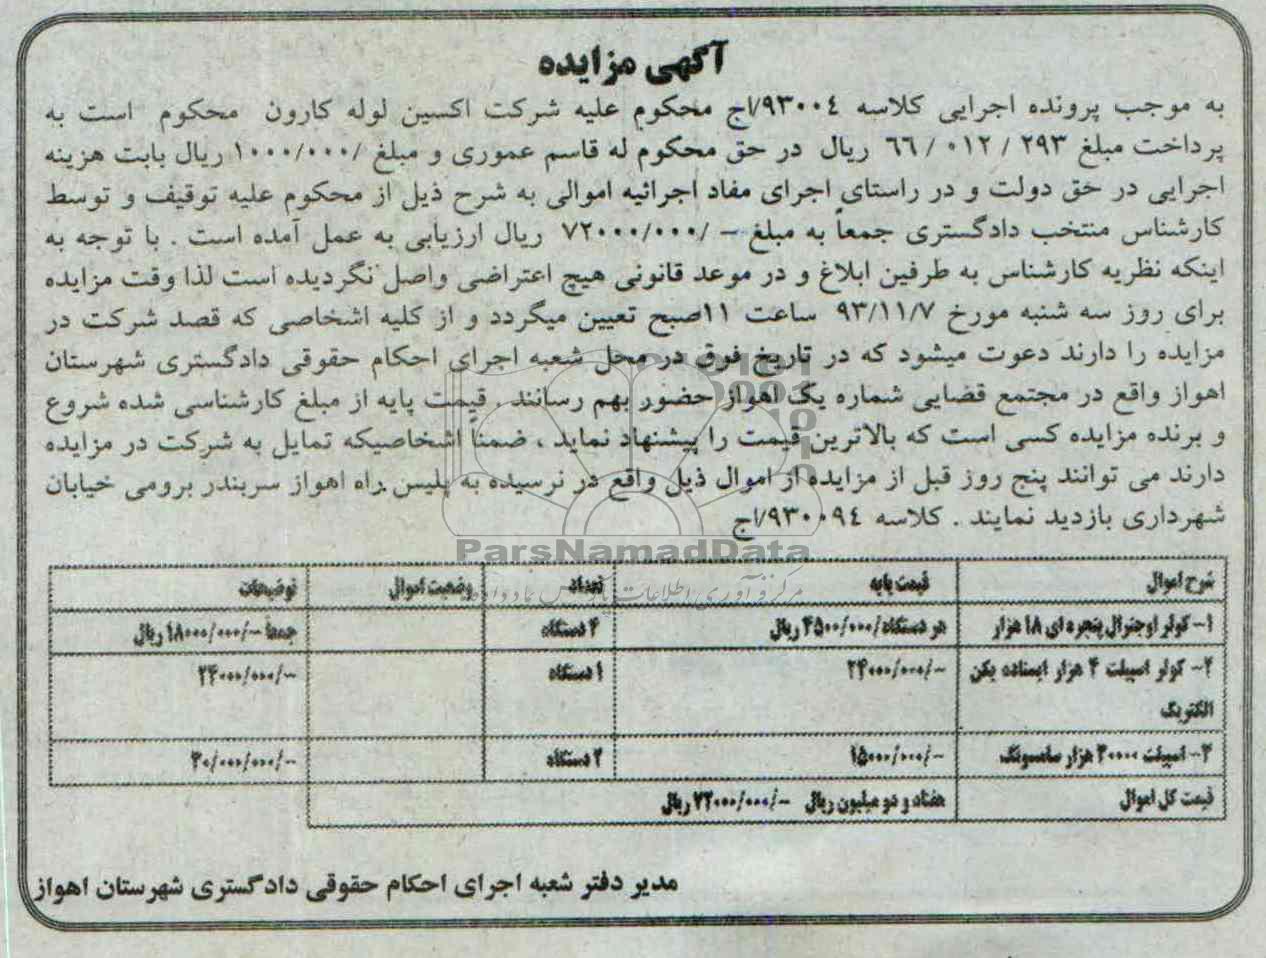 آگهی مزایده
به موجب پرونده اجرایی کلاسه ۹۳۰۰۴/اج محکوم علیه شرکت اکسین لوله کارون محکوم است به
پرداخت مبلغ ۲۹۳ / ۰۱۲ / ۶۶ ریال در حق محکوم له قاسم عموری و مبلغ /۱۰۰۰/۰۰۰ ریال بابت هزینه
اجرایی در حق دولت و در راستای اجرای مفاد اجرائیه اموالی به شرح ذیل از محکوم علیه توقیف و توسط
کارشناس منتخب دادگستری جمعاً به مبلغ – /۷۲۰۰۰/۰۰۰ ریال ارزیابی به عمل آمده است . با توجه به
اینکه نظریه کارشناس به طرفین ابلاغ و در موعد قانونی هیچ اعتراضی واصل نگردیده است لذا وقت مزایده
برای روز سه شنبه مورخ ۹۳/۱۱/۷ ساعت ۱۱صبح تعیین میگردد و از کلیه اشخاصی که قصد شرکت در
مزایده را دارند دعوت میشود که در تاریخ فوق در محل شعبه اجرای احکام حقوقی دادگستری شهرستان
اهواز واقع در مجتمع قضایی شماره یک اهواز حضور بهم رسانند . قیمت پایه از مبلغ کارشناسی شده شروع
و برنده مزایده کسی است که بالاترین قیمت را پیشنهاد نماید ، ضمناً اشخاصیکه تمایل به شرکت در مزایده
دارند می توانند پنج روز قبل از مزایده از اموال ذیل واقع در نرسیده به پلیس راه اهواز سربندر برومی خیابان
شهرداری بازدید نمایند . کلاسه ۹۳۰۰۹۴/اج
ParsNamadData
شرح اموال قیمت پایه تعداد وضعیت اموال توضیحات
۱- کولر اوجنرال پنجره ای ۱۸ هزار هر دستگاه/۴۵۰۰/۰۰۰ ریال ۴ دستگاه جمعاً –/۱۸۰۰۰/۰۰۰ ریال
۲- کولر اسپلت ۴ هزار ایستاده یکن –/۲۴۰۰۰/۰۰۰ ۱ دستگاه –/۲۴۰۰۰/۰۰۰
الکتریک
۳- اسپلت ۳۰۰۰۰ هزار سامسونگ –/۱۵۰۰۰/۰۰۰ ۲ دستگاه –/۳۰/۰۰۰/۰۰۰
قیمت کل اموال هفتاد و دو میلیون ریال –/۷۲۰۰۰/۰۰۰ ریال
مدیر دفتر شعبه اجرای احکام حقوقی دادگستری شهرستان اهواز